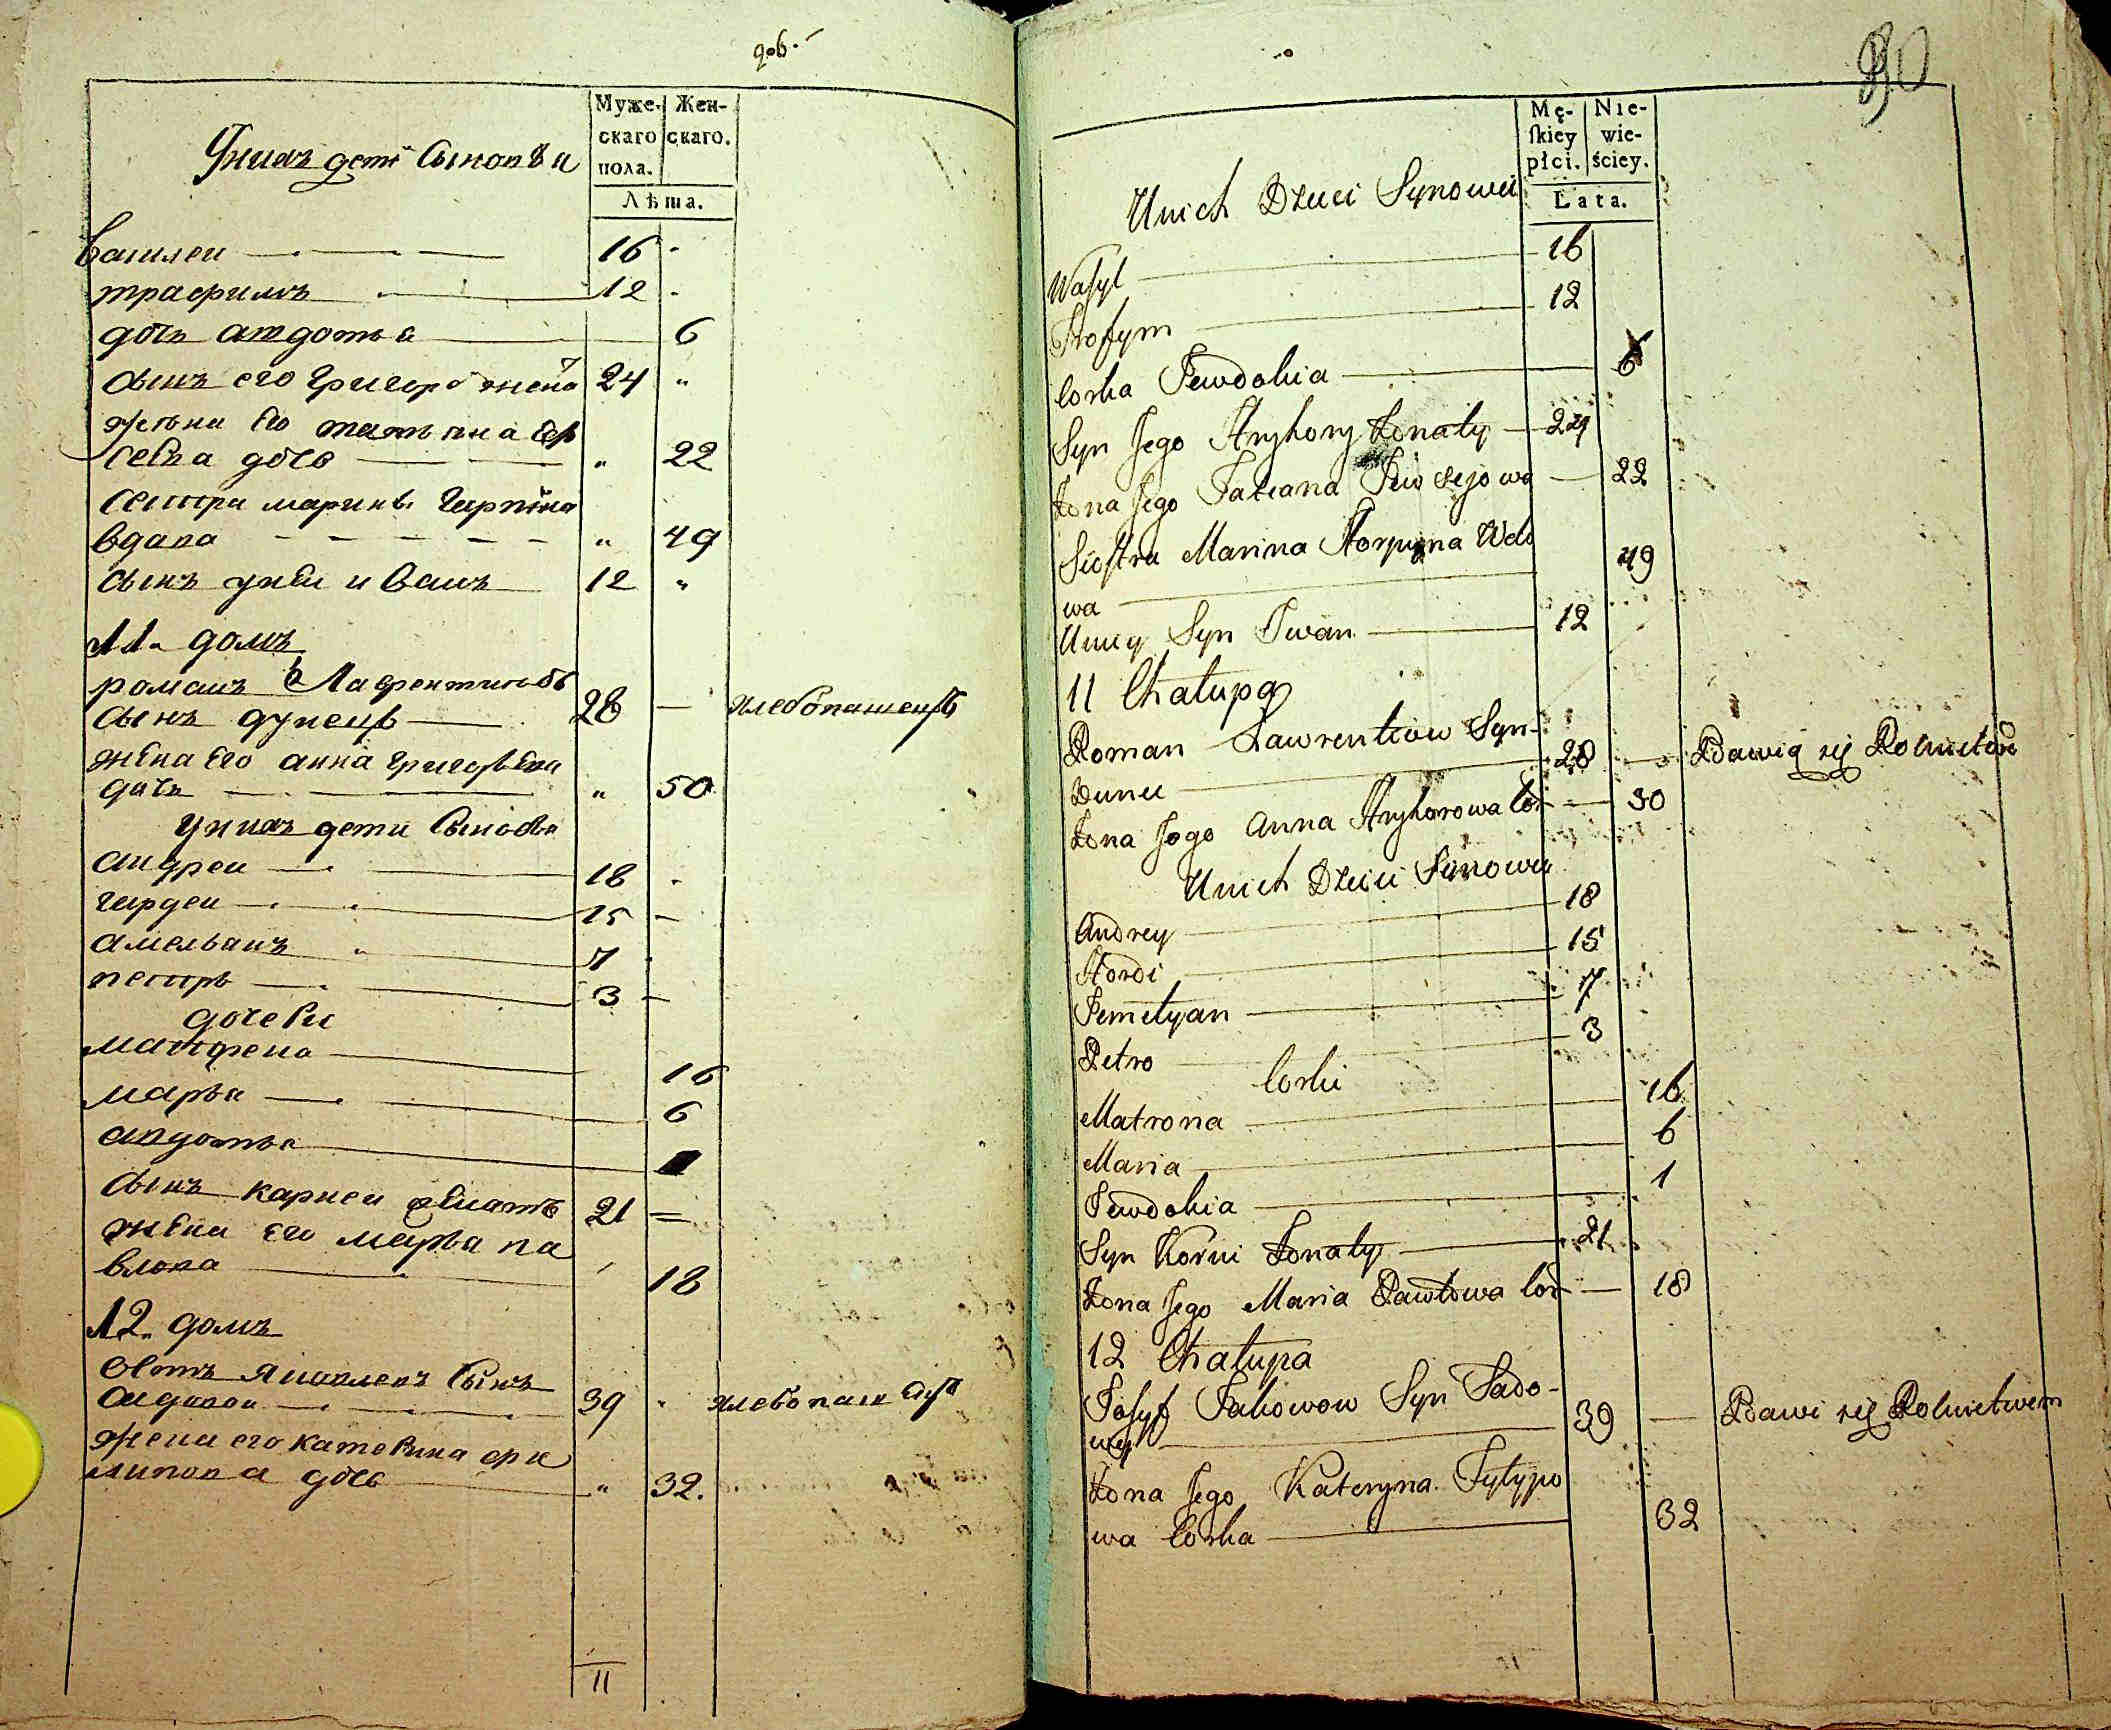 доб.
Муже-
скаго
пола.
Жен-
скаго.
Лѣта.
Унихъ дети Сыновья
Василеи 16
трафимъ 12
дочь авдотья 6
Сынъ его Григорӣ жена 24
жена Его татьяна Ев
Севва дочь 22
Сестра марина Гарпина
вдава 49
Сынъ унеи иванъ 12
11. домъ
романъ Лаврентиевъ
Сынъ дунецъ 28 хлебопашецъ
жена Его анна григорьева
дочь 50
Унихъ дети Сыновья
андреи 18
гардеи 15
амельянъ 7
петръ 3
дочери
матрена 16
марья 6
авдотья
Сынъ карнеи женатъ 21
жена Его марья па
влова 18
12. домъ
осипъ яковлевъ Сынъ
садовои 39
жена его катерина фи
липова дочь 32.
11
90
Mę-
ſkiey
płci.
Nie-
wie-
ściey.
Lata.
Unich Dzieci Synowie
Wasyl 16
Trofym 12
Corka Jewdokia 6
Syn Jego Hryhory Żonaty 24
Żona Jego Tatiana Jewsejowa 22
Siostra Marina Horpyna Wdo
wa 49
Uniey Syn Iwan 12
11 Chałupa
Roman Lawrentiow Syn
Dunec 28 Bawią się Rolnictwem
Żona Jego Anna Hryhorowa Cor 50
Unich Dzieci Synowie
Andrey 18
Hordi 15
Jemelyan 7
Petro 3
Corki
Matrona 16
Maria 6
Jewdokia 1
Syn Korni Żonaty 21
Żona Jego Maria Pawłowa Cor 18
12 Chałupa
Josyf Jakowow Syn Sado-
wey 39 Bawi się Rolnictwem
Żona Jego Kateryna Fylypo
wa Corka 32